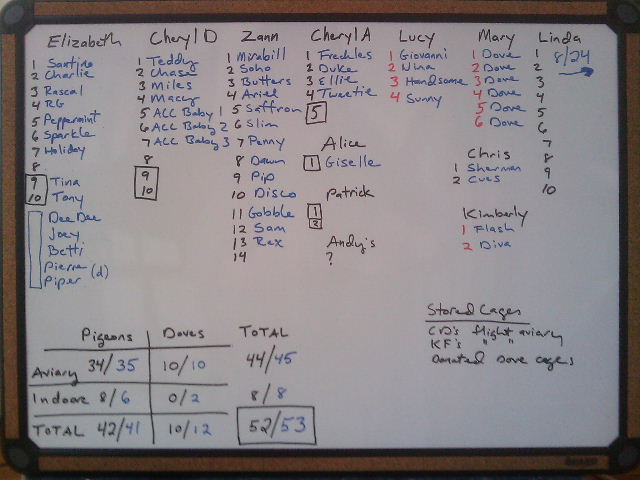 Elizabeth
1 Santino
2 Charlie
3 Rascal
4 RG
5 Peppermint
6 Sparkle
7 Holiday
8
9 Tina
10 Tony
DeeDee
Joey
Betti
Pierre (d)
Piper
Cheryl D
1 Teddy
2 Chase
3 Miles
4 Macy
5 ACC Baby 1
6 ACC Baby 2
7 ACC Baby 3
8
9
10
Zann
1 Mirabill
2 Soho
3 Butters
4 Ariel
5 Saffron
6 Slim
7 Penny
8 Dawn
9 Pip
10 Disco
11 Gobble
12 Sam
13 Rex
14
Cheryl A
1 Freckles
2 Duke
3 Ellie
4 Tweetie
5
Alice
1 Giselle
Patrick
1
2
Andy's
?
Lucy
1 Giovanni
2 Nina
3 Handsome
4 Sunny
Mary
1 Dove
2 Dove
3 Dove
4 Dove
5 Dove
6 Dove
Chris
1 Sherman
2 Cues
Kimberly
1 Flash
2 Diva
Linda
1 8/24
2
3
4
5
6
7
8
9
10
Pigeons Doves TOTAL
Aviary 34/35 10/10 44/45
Indoor 8/6 0/2 8/8
TOTAL 42/41 10/12 52/53
Stored Cages
CD's flight aviary
KF's " "
Donated Dove cages